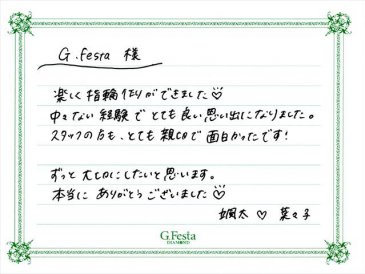 G.festa 様
楽しく指輪作りができました♡
中々ない経験でとても良い思い出になりました。
スタッフの方も、とても親切で面白かったです!
ずっと大切にしたいと思います。
本当にありがとうございました♡
颯太 ♡ 菜々子
G.Festa
DIAMOND